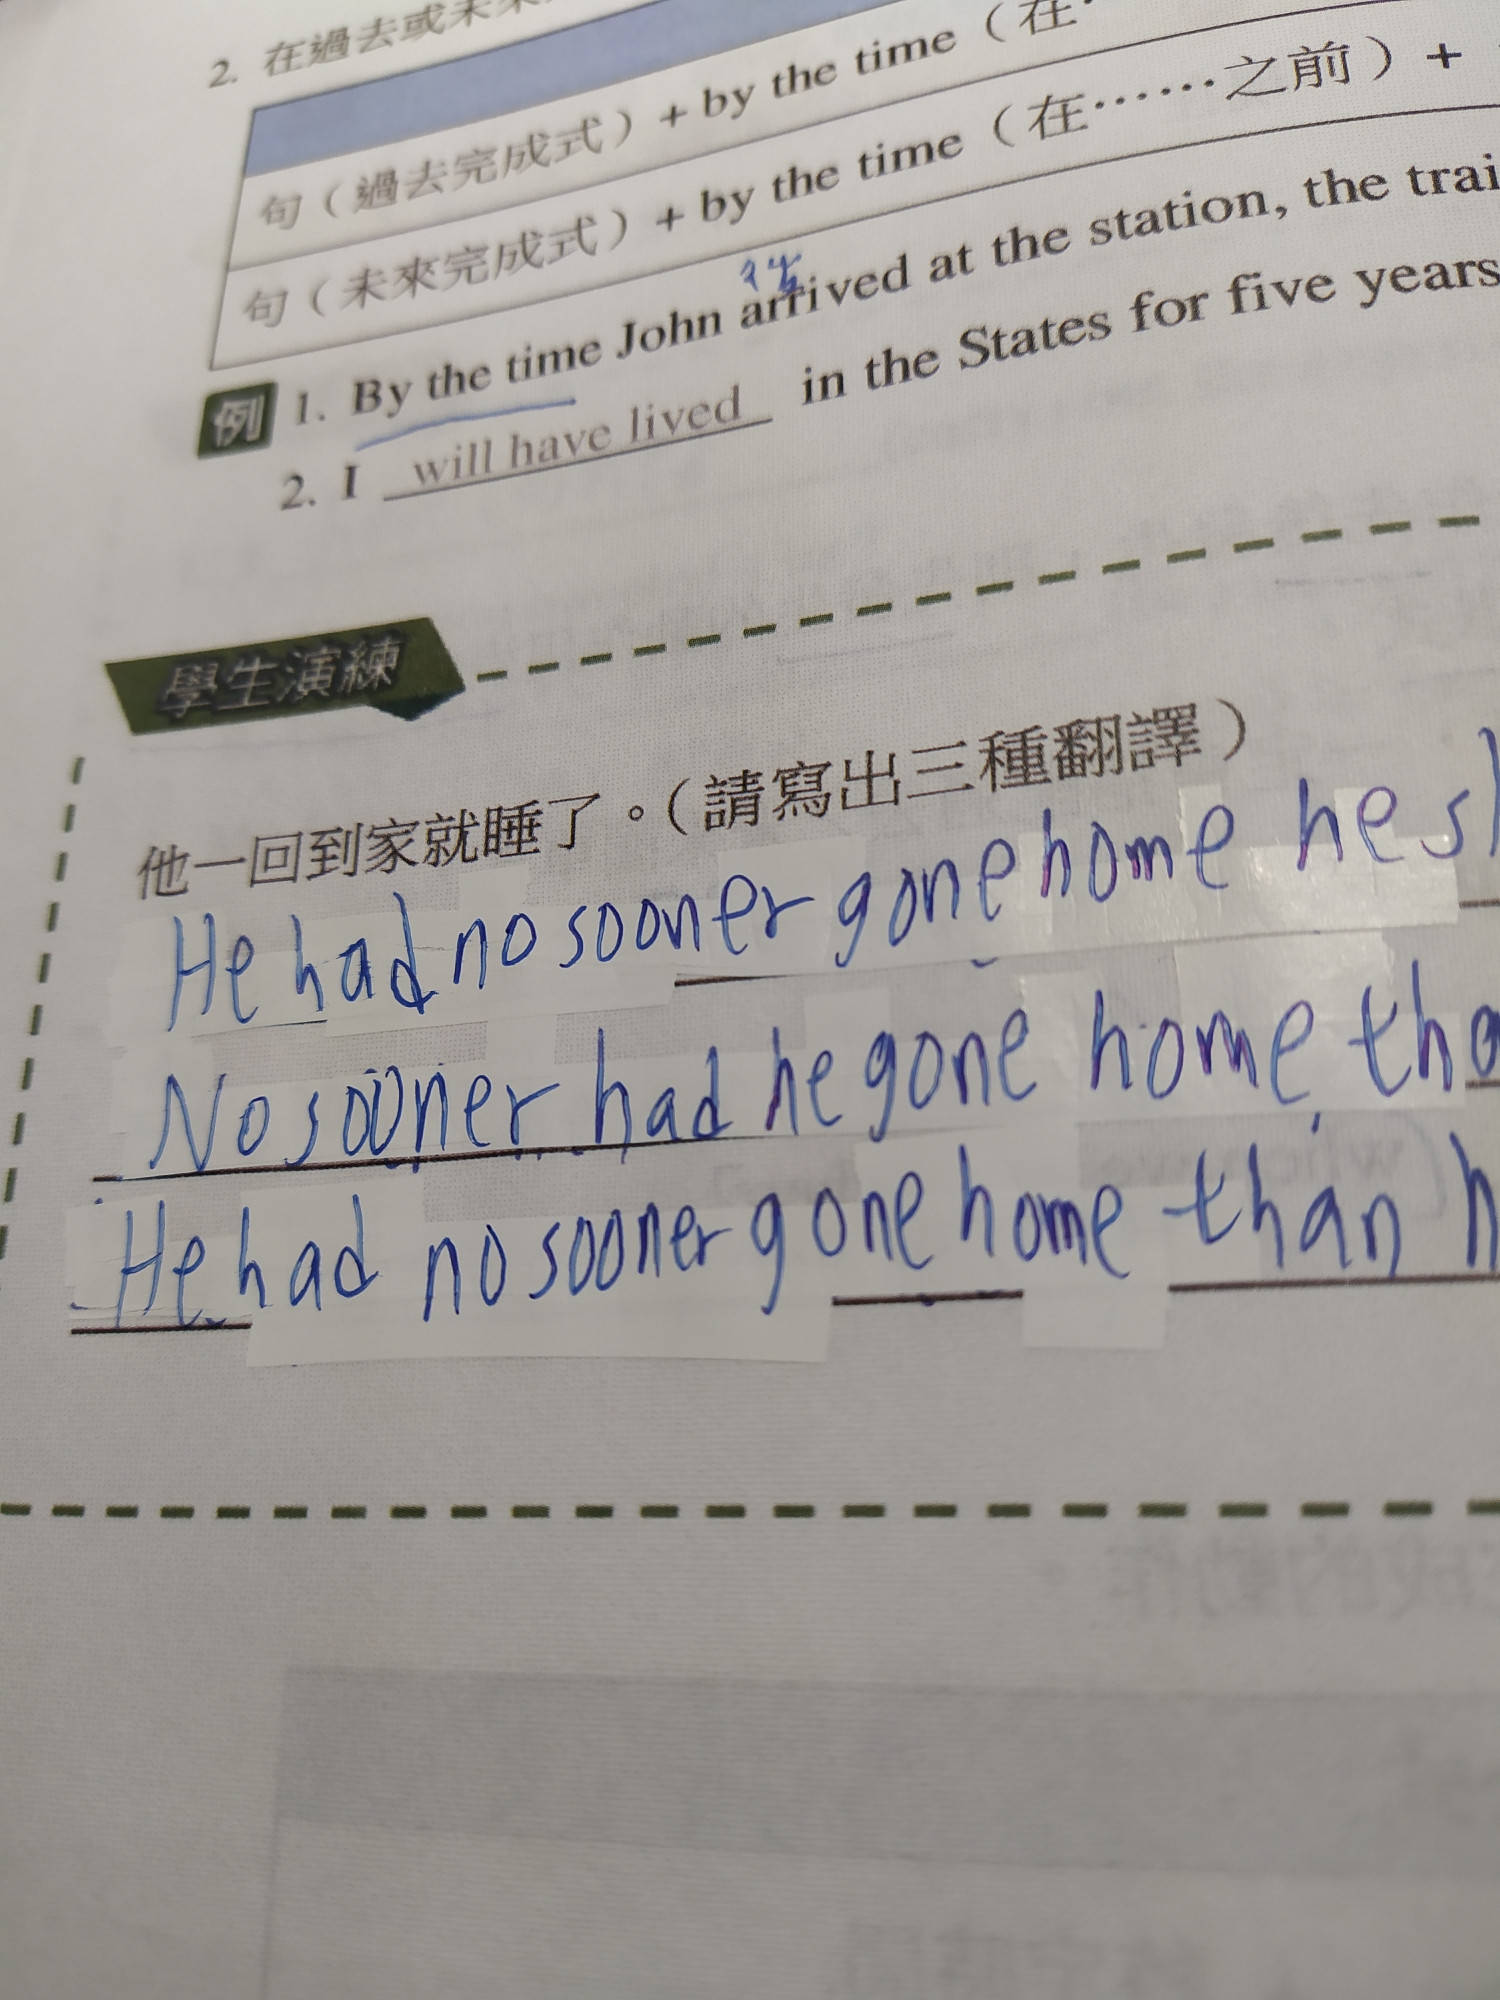 2. 在過去或未來
句（過去完成式）+ by the time（在
句（未來完成式）+ by the time（在……之前）+
例 1. By the time John arrived at the station, the trai
2. I will have lived in the States for five years
學生演練
他一回到家就睡了。（請寫出三種翻譯）
He had no sooner gone home he sl
No sooner had he gone home tha
He had no sooner gone home than h